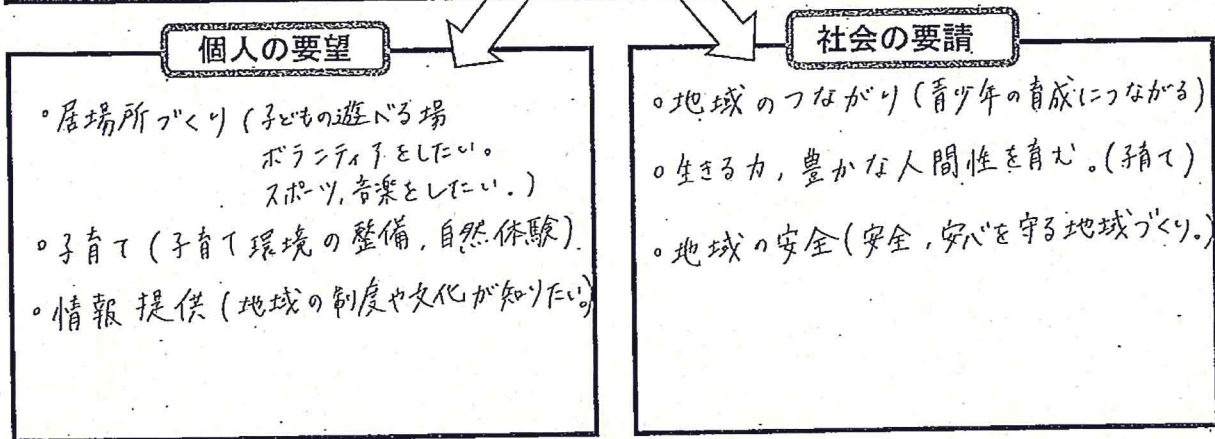 個人の要望
◦居場所づくり(子どもの遊べる場
ボランティアをしたい。
スポーツ,音楽をしたい。)
◦子育て(子育て環境の整備,自然体験)
◦情報提供(地域の制度や文化が知りたい。)
社会の要請
◦地域のつながり(青少年の育成につながる)
◦生きる力,豊かな人間性を育む。(子育て)
◦地域の安全(安全,安心を守る地域づくり。)